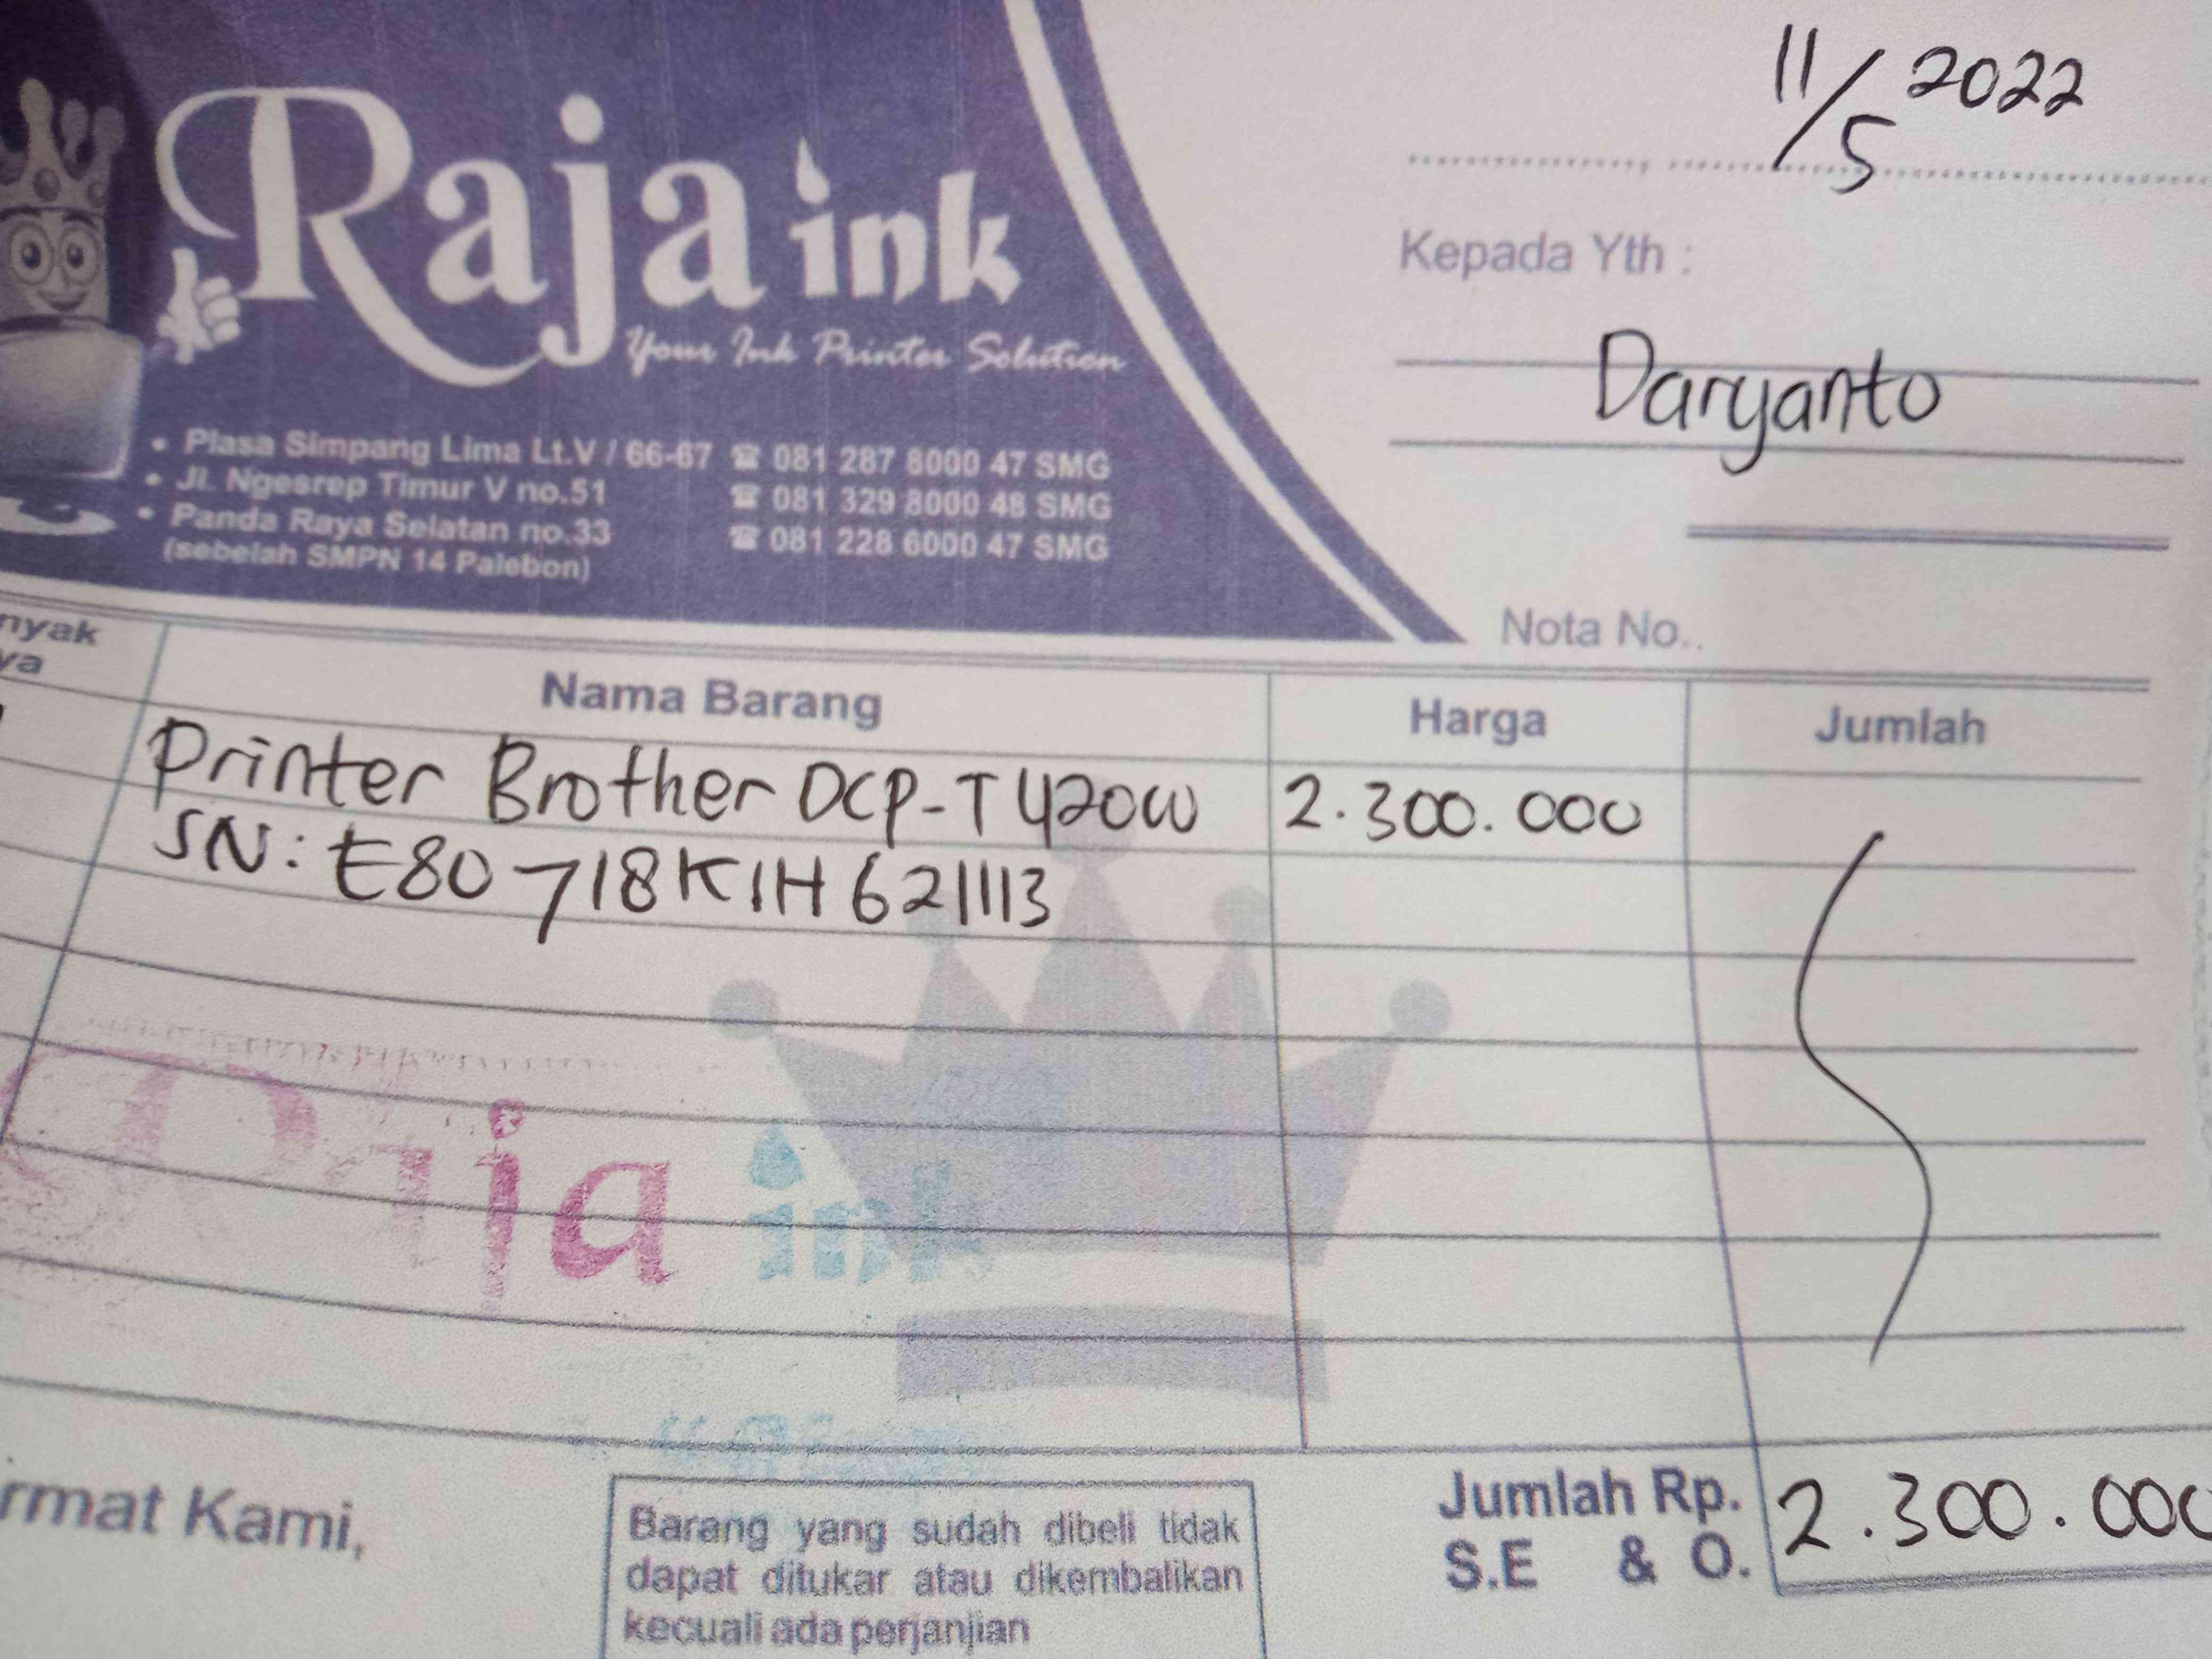 Raja ink
Your Ink Printer Solution
• Plasa Simpang Lima Lt.V / 66-67 ☎ 081 287 8000 47 SMG
• Jl. Ngesrep Timur V no.51 ☎ 081 329 8000 48 SMG
• Panda Raya Selatan no.33 ☎ 081 228 6000 47 SMG
(sebelah SMPN 14 Palebon)
11/5 2022
Kepada Yth :
Daryanto
Nota No..
nyak
ya
Nama Barang Harga Jumlah
Printer Brother DCP-T420W 2.300.000
SN: E80718K1H621113
Raja ink
rmat Kami,
Barang yang sudah dibeli tidak
dapat ditukar atau dikembalikan
kecuali ada perjanjian
Jumlah Rp. 2.300.000
S.E & O.